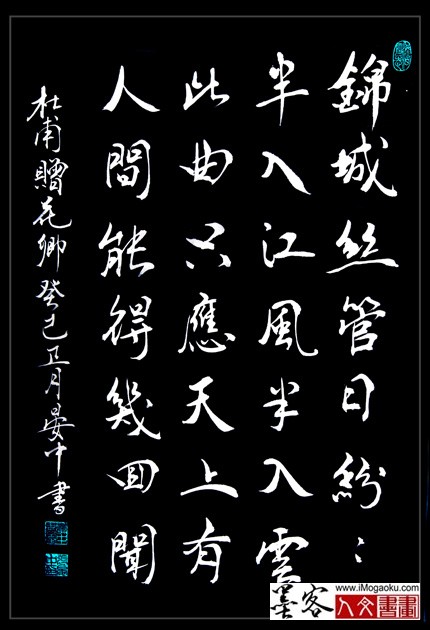 錦城丝管日紛〻
半入江風半入雲
此曲只應天上有
人間能得幾回聞
杜甫贈花卿癸巳正月晏中書
墨客
www.iMogaoku.com
人文書畫